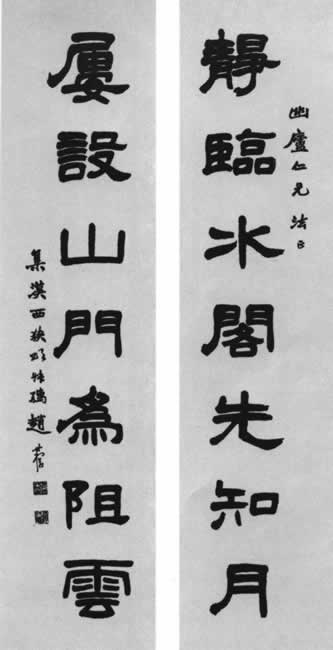 靜臨水閣先知月
幽廬仁兄 法正
屢設山門為阻雲
集漢西狹頌 趙